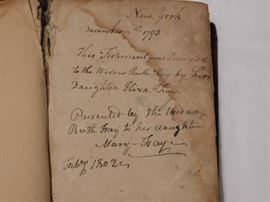 New York
December 7th 1793
This Testament was Presented
to the Widow Ruth Hay by her
Daughter Eliza Hay
Presented by the Widow
Ruth Hay to her daughter
Mary Hay
Feby 1802